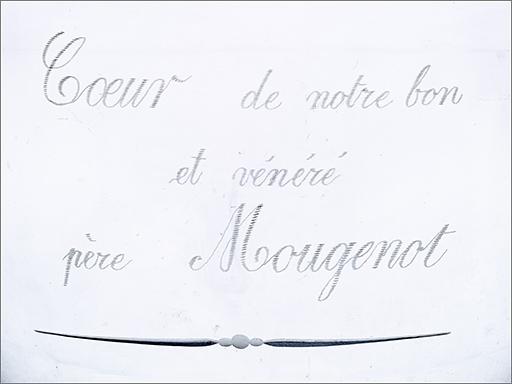 Cœur de notre bon
et vénéré
père Mougenot